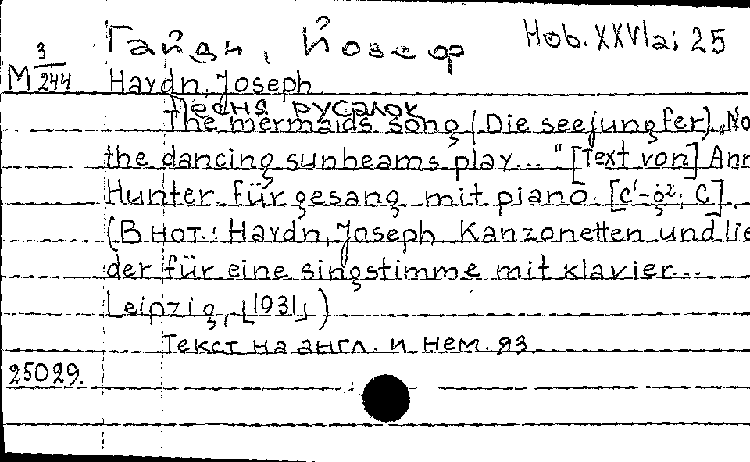 Гайдн, Йозеф Hob. XXVIa: 25
М 3/244 Haydn, Joseph
Песня русалок
The mermaids song (Die seejungfer). „No
the dancing sunbeams play..." [Text von] Ann
Hunter für gesang mit piano. [c¹-g²; C].
(В нот.: Haydn, Joseph Kanzonetten und lie
der für eine singstimme mit klavier...
Leipzig, [1931])
Текст на англ. и нем. яз.
25029.